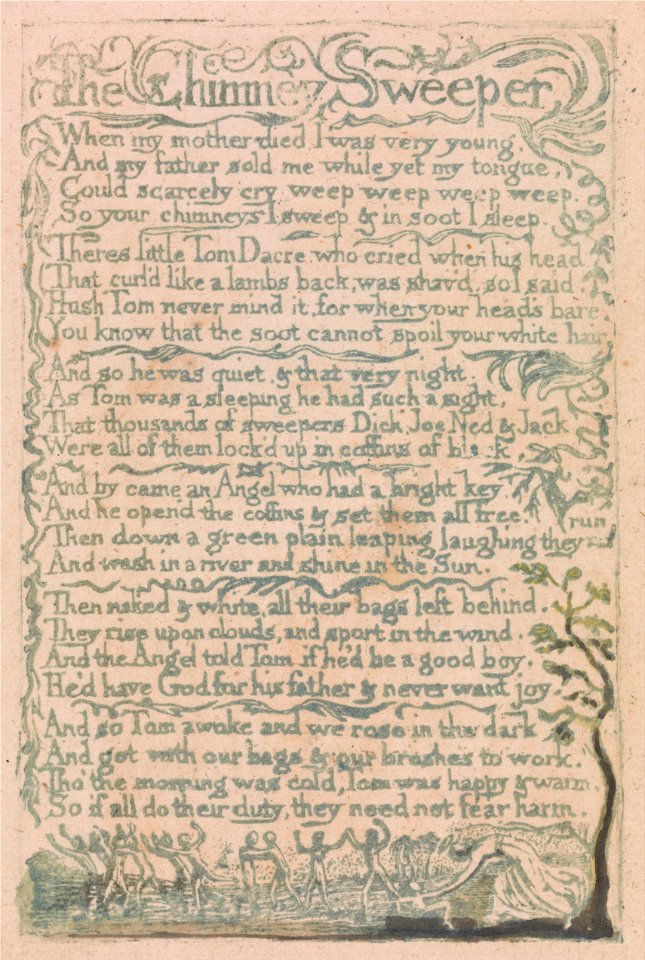 The Chimney Sweeper
When my mother died I was very young,
And my father sold me while yet my tongue,
Could scarcely cry weep weep weep weep.
So your chimneys I sweep & in soot I sleep.
Theres little Tom Dacre, who cried when his head
That curl'd like a lambs back, was shav'd, so I said.
Hush Tom never mind it, for when your head's bare,
You know that the soot cannot spoil your white hair
And so he was quiet, & that very night.
As Tom was a sleeping he had such a sight,
That thousands of sweepers Dick, Joe, Ned & Jack
Were all of them lock'd up in coffins of black,
And by came an Angel who had a bright key
And he open'd the coffins & set them all free.
Then down a green plain leaping laughing they run
And wash in a river and shine in the Sun.
Then naked & white, all their bags left behind.
They rise upon clouds, and sport in the wind.
And the Angel told Tom, if he'd be a good boy,
He'd have God for his father & never want joy.
And so Tom awoke and we rose in the dark
And got with our bags & our brushes to work.
Tho' the morning was cold, Tom was happy & warm.
So if all do their duty, they need not fear harm.